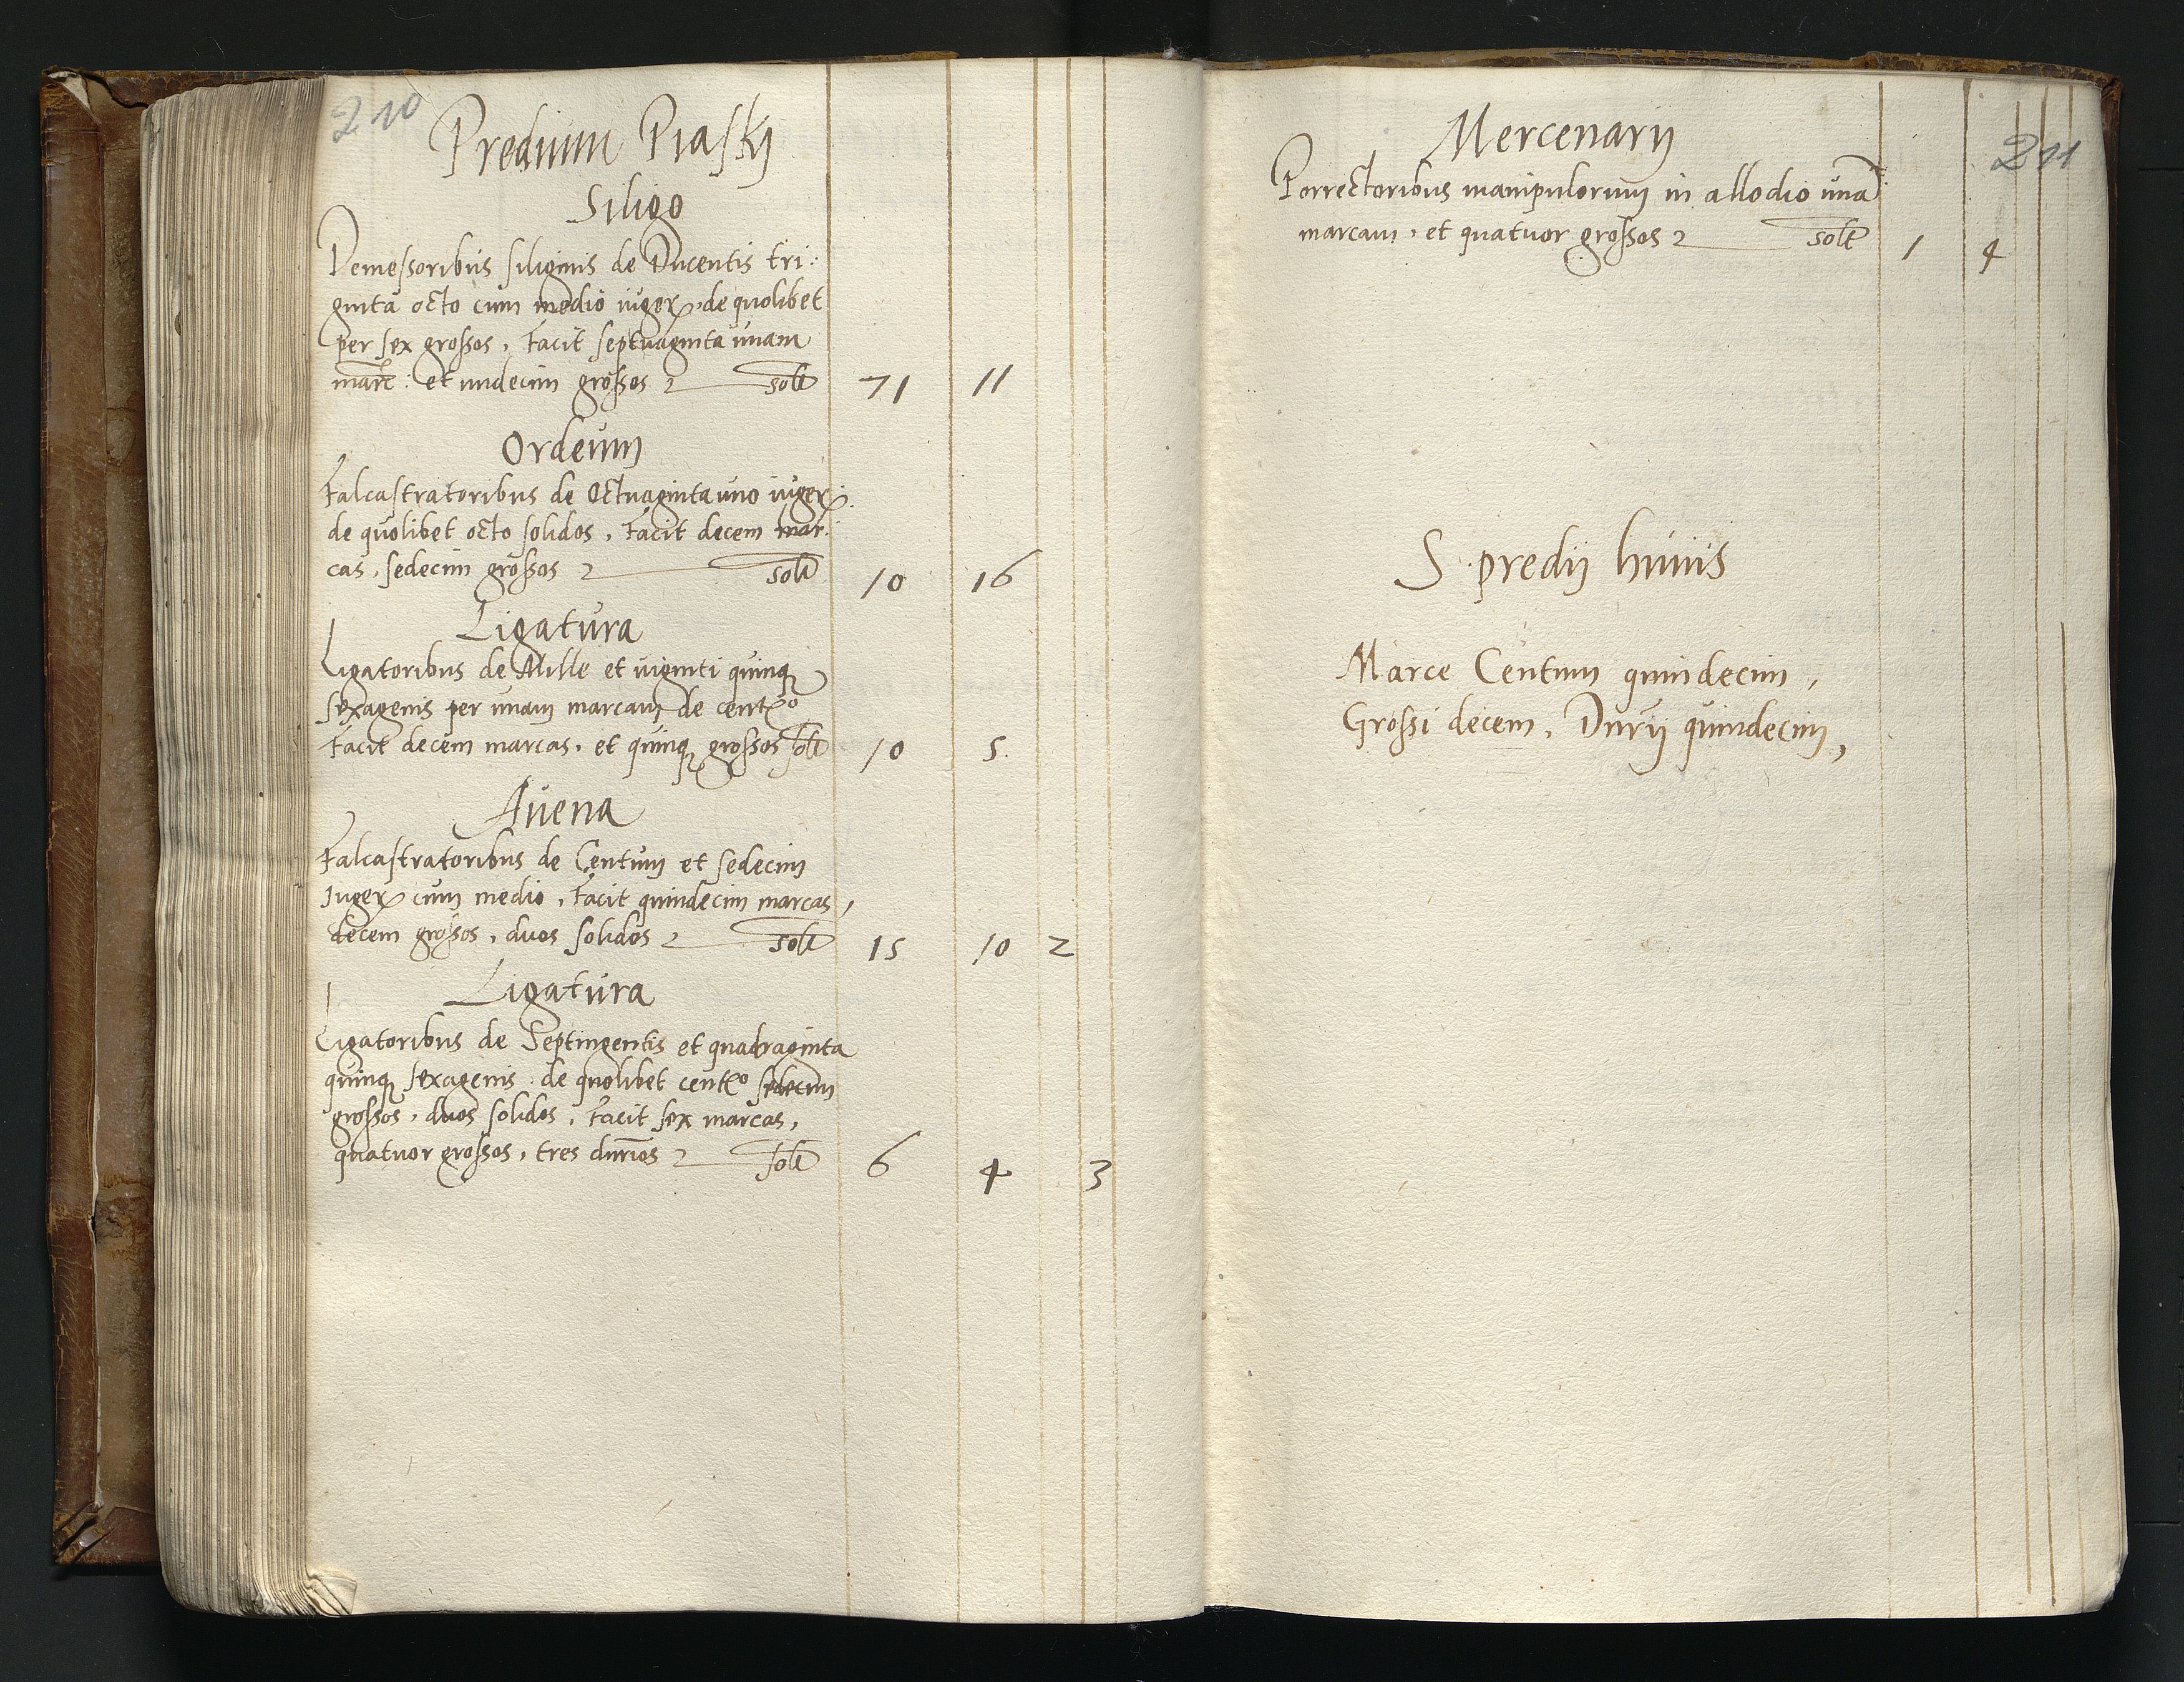 210
Predium Piasky
Siligo
Demessoribus siliginis de Ducentis tri:
ginta octo cum medio iuger, de quolibet
per sex grossos, Facit septuaginta unam
marc: et undecim grossos solt 71 11
Ordeum
Falcastratoribus de Octuaginta uno iuger:
de quolibet octo solidos, Facit decem mar:
cas, sedecim grossos solt 10 16
Ligatura
Ligatoribus de Mille et viginti quinq
sexagenis per unam marcam de cent°
Facit decem marcas, et quinq grossos solt 10 5.
Avena
Falcastratoribus de Centum et sedecim
Iuger cum medio, Facit quindecim marcas,
decem grossos, duos solidos solt 15 10 2
Ligatura
Ligatoribus de Septingentis et quadraginta
quinq sexagenis de quolibet cent° sedecim
grossos, duos solidos, Facit sex marcas,
quatuor grossos, tres durios solt 6 4 3
211
Mercenarij
Porrectoribus manipulorum in allodio unā
marcam, et quatuor grossos solt 1 4
S predij huius
Marce Centum quindecim,
Grossi decem, Durij quindecim,